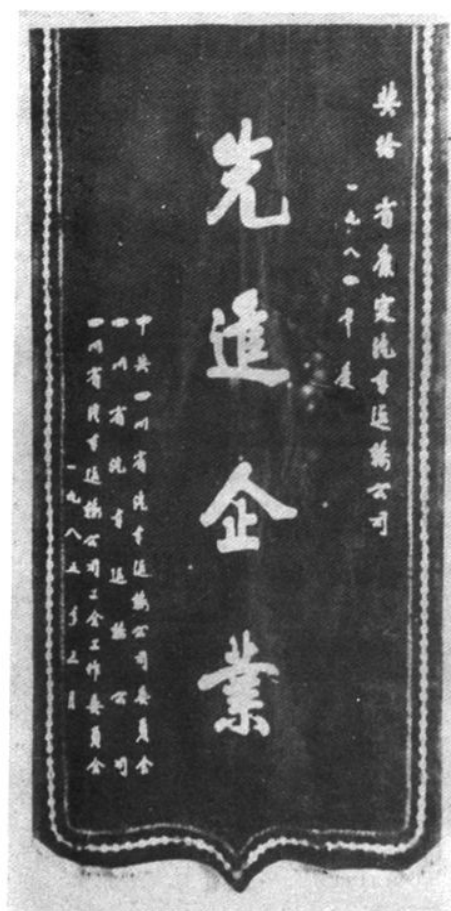 奖给 省康定汽车运输公司
一九八四年度
先进企業
中共四川省汽车运输公司委员会
四川省汽车运输公司
四川省汽车运输公司工会工作委员会
一九八五年三月